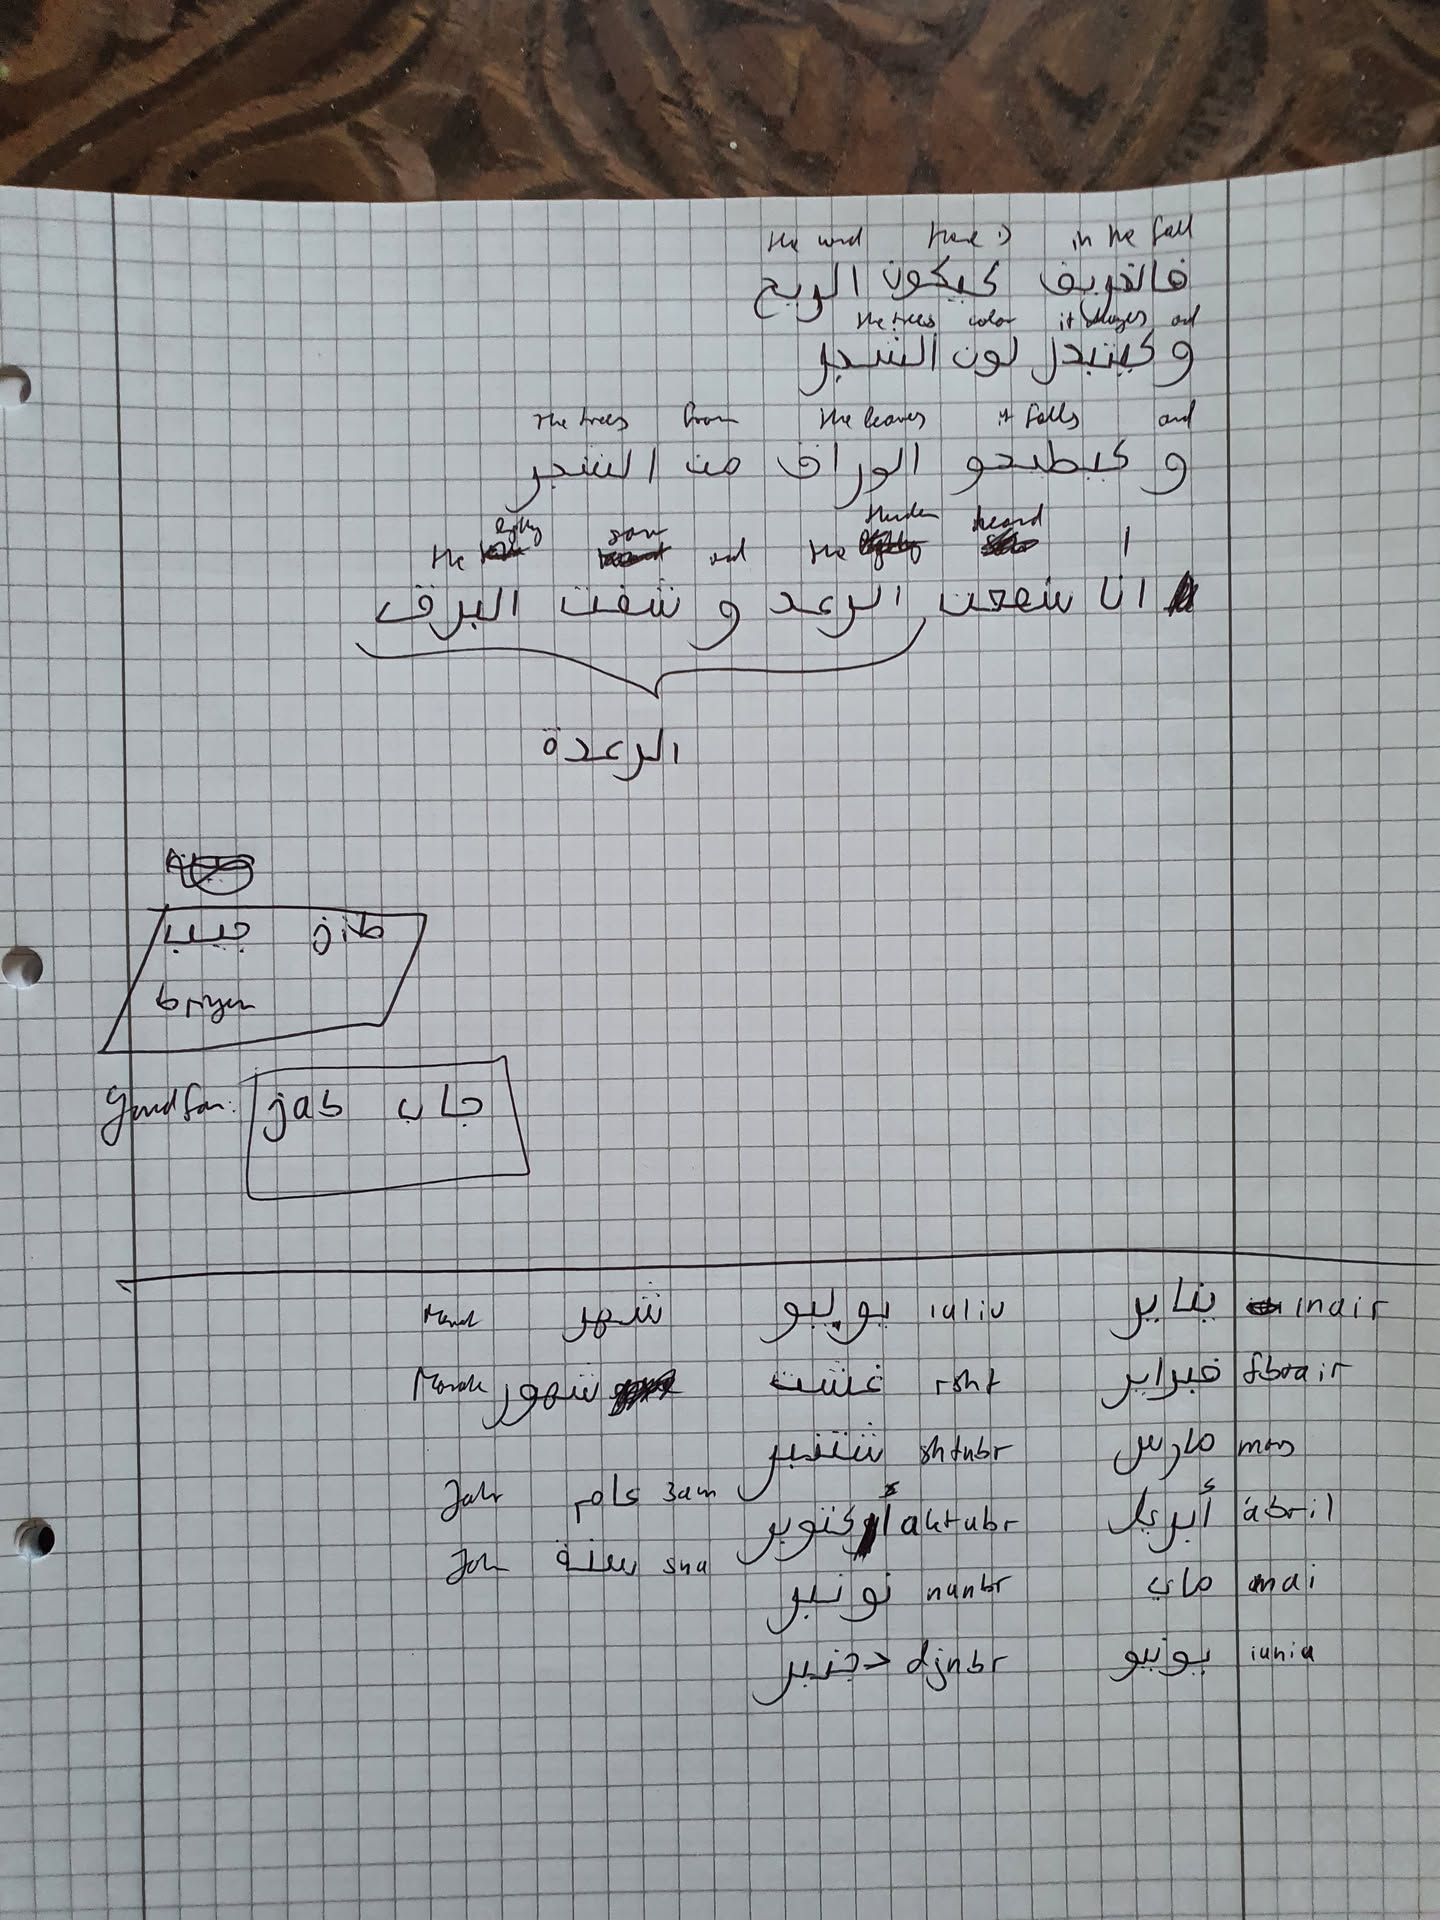 the wind there is in the fall
فالخريف كيكون الريح
the trees color it changes and
و كيتبدل لون الشجر
the trees from the leaves it falls and
و كيطيحو الوراق من الشجر
the saw and the heard I
انا سمعت الرعد و شفت البرق
الرعدة
جيب jib
bringen
jab جاب
شهر يوليو iuliu يناير inair
شهور غشت rsht فبراير fbrair
شتنبر shtnbr مارس mrs
Jahr عام 3am أكتوبر aktubr أبريل abril
Jahr سنة sna نونبر nunbr ماي mai
دجنبر djnbr يونيو iuniu